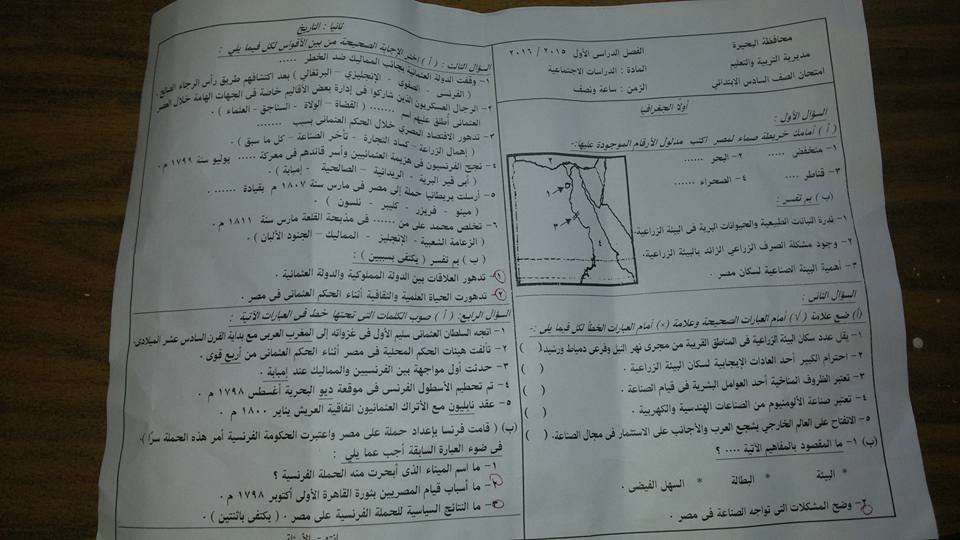 محافظة البحيرة
مديرية التربية والتعليم
امتحان الصف السادس الابتدائى
الفصل الدراسى الأول ٢٠١٥ / ٢٠١٦
المادة : الدراسات الاجتماعية
الزمن : ساعة ونصف
أولاً الجغرافيا
السؤال الأول :
( أ ) أمامك خريطة صماء لمصر اكتب مدلول الأرقام الموجودة عليها:-
١- منخفض ..... ٢- البحر ......
٣- قناطر .... ٤- الصحراء ......
(ب ) بم تفسر :
١- ندرة النباتات الطبيعية والحيوانات البرية فى البيئة الزراعية.
٢- وجود مشكلة الصرف الزراعي الزائد بالبيئة الزراعية.
٣- أهمية البيئة الصناعية لسكان مصر .
٢
١
٣
٤
السؤال الثانى :
(أ) ضع علامة (√) أمام العبارات الصحيحة وعلامة (×) أمام العبارات الخطأ لكل فيما يلى :-
١- يقل عدد سكان البيئة الزراعية فى المناطق القريبة من مجرى نهر النيل وفرعى دمياط ورشيد( )
٢- احترام الكبير أحد العادات الإيجابية لسكان البيئة الزراعية . ( )
٣- تعتبر الظروف المناخية أحد العوامل البشرية فى قيام الصناعة . ( )
٤- تعتبر صناعة الألومنيوم من الصناعات الهندسية والكهربية . ( )
٥- الانفتاح على العالم الخارجي يشجع العرب والأجانب على الاستثمار فى مجال الصناعة. ( )
(ب) ١- ما المقصود بالمفاهيم الآتية .... ؟
* البيئة * البطالة * السهل الفيضى .
٢- وضح المشكلات التى تواجه الصناعة فى مصر .
ثانيا : التاريخ
السؤال الثالث : ( أ ) اختر الإجابة الصحيحة من بين الأقواس لكل فيما يلي :
١- وقفت الدولة العثمانية بجانب المماليك ضد الخطر .....
( الفرنسى - الصفوى - الإنجليزي - البرتغالي ) بعد اكتشافهم طريق رأس الرجاء الصالح.
٢- الرجال العسكريون الذين شاركوا فى إدارة بعض الأقاليم خاصة فى الجهات الهامة خلال العصر
العثمانى أطلق عليهم اسم ....... ( القضاة – الولاة - السناجق - العلماء ) .
٣- تدهور الاقتصاد المصري خلال الحكم العثمانى بسبب .......
( إهمال الزراعة – كساد التجارة - تأخر الصناعة – كل ما سبق ) .
٤- نجح الفرنسيون فى هزيمة العثمانيين وأسر قائدهم فى معركة ..... يوليو سنة ١٧٩٩ م .
( أبى قير البرية - الريدانية - الصالحية - إمبابة ) .
٥- أرسلت بريطانيا حملة إلى مصر فى مارس سنة ١٨٠٧ م بقيادة ......
( مينو - فريزر - كليبر - نلسون ) .
٦- تخلص محمد على من ..... فى مذبحة القلعة مارس سنة ١٨١١ م .
( الزعامة الشعبية - الإنجليز - المماليك – الجنود الألبان ) .
( ب ) بم تفسر ( يكتفى بسببين ) :
١- تدهور العلاقات بين الدولة المملوكية والدولة العثمانية .
٢- تدهورت الحياة العلمية والثقافية أثناء الحكم العثمانى فى مصر .
السؤال الرابع: ( أ ) صوب الكلمات التى تحتها خط فى العبارات الآتية :
١- اتجه السلطان العثمانى سليم الأول فى غزواته إلى المغرب العربى مع بداية القرن السادس عشر الميلادى.
٢- تألفت هيئات الحكم المحلية فى مصر أثناء الحكم العثمانى من أربع قوى .
٣- حدثت أول مواجهة بين الفرنسيين والمماليك عند إمبابة .
٤- تم تحطيم الأسطول الفرنسى فى موقعة ديو البحرية أغسطس ١٧٩٨ م .
٥- عقد نابليون مع الأتراك العثمانيون اتفاقية العريش يناير ١٨٠٠ م .
(ب) ( قامت فرنسا بإعداد حملة على مصر واعتبرت الحكومة الفرنسية أمر هذه الحملة سرًا ).
فى ضوء العبارة السابقة أجب عما يلى :
١- ما اسم الميناء الذى أبحرت منه الحملة الفرنسية ؟
٢- ما أسباب قيام المصريين بثورة القاهرة الأولى أكتوبر ١٧٩٨ م .
٣- ما النتائج السياسية للحملة الفرنسية على مصر . ( يكتفى باثنتين ) .
انتهت الأسئلة